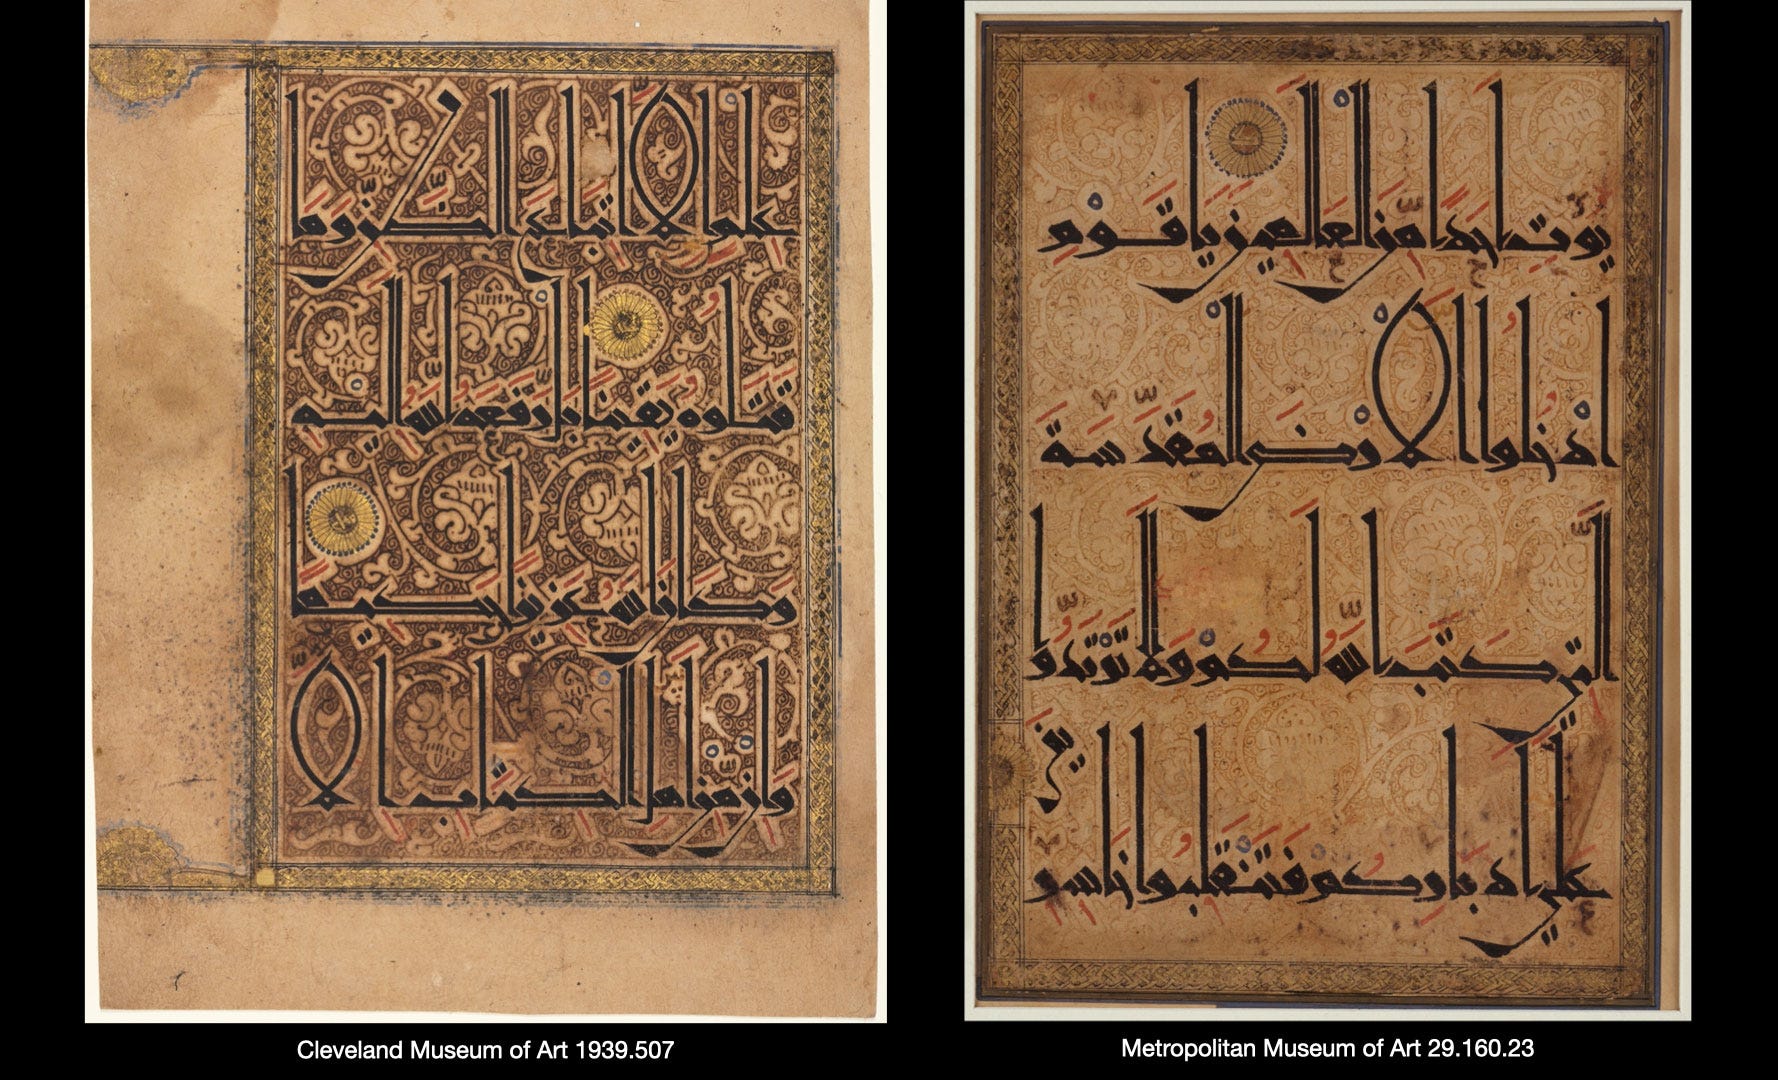 علم الا اتباع الظن وما
قتلوه يقينا بل رفعه الله اليه
وكان الله عزيزا حكيما
وان من اهل الكتاب الا
Cleveland Museum of Art 1939.507
يوت احدا من العالمين يا قوم
ادخلوا الارض المقدسة
التي كتب الله لكم ولا ترتدوا
على ادباركم فتنقلبوا خاسرين
Metropolitan Museum of Art 29.160.23